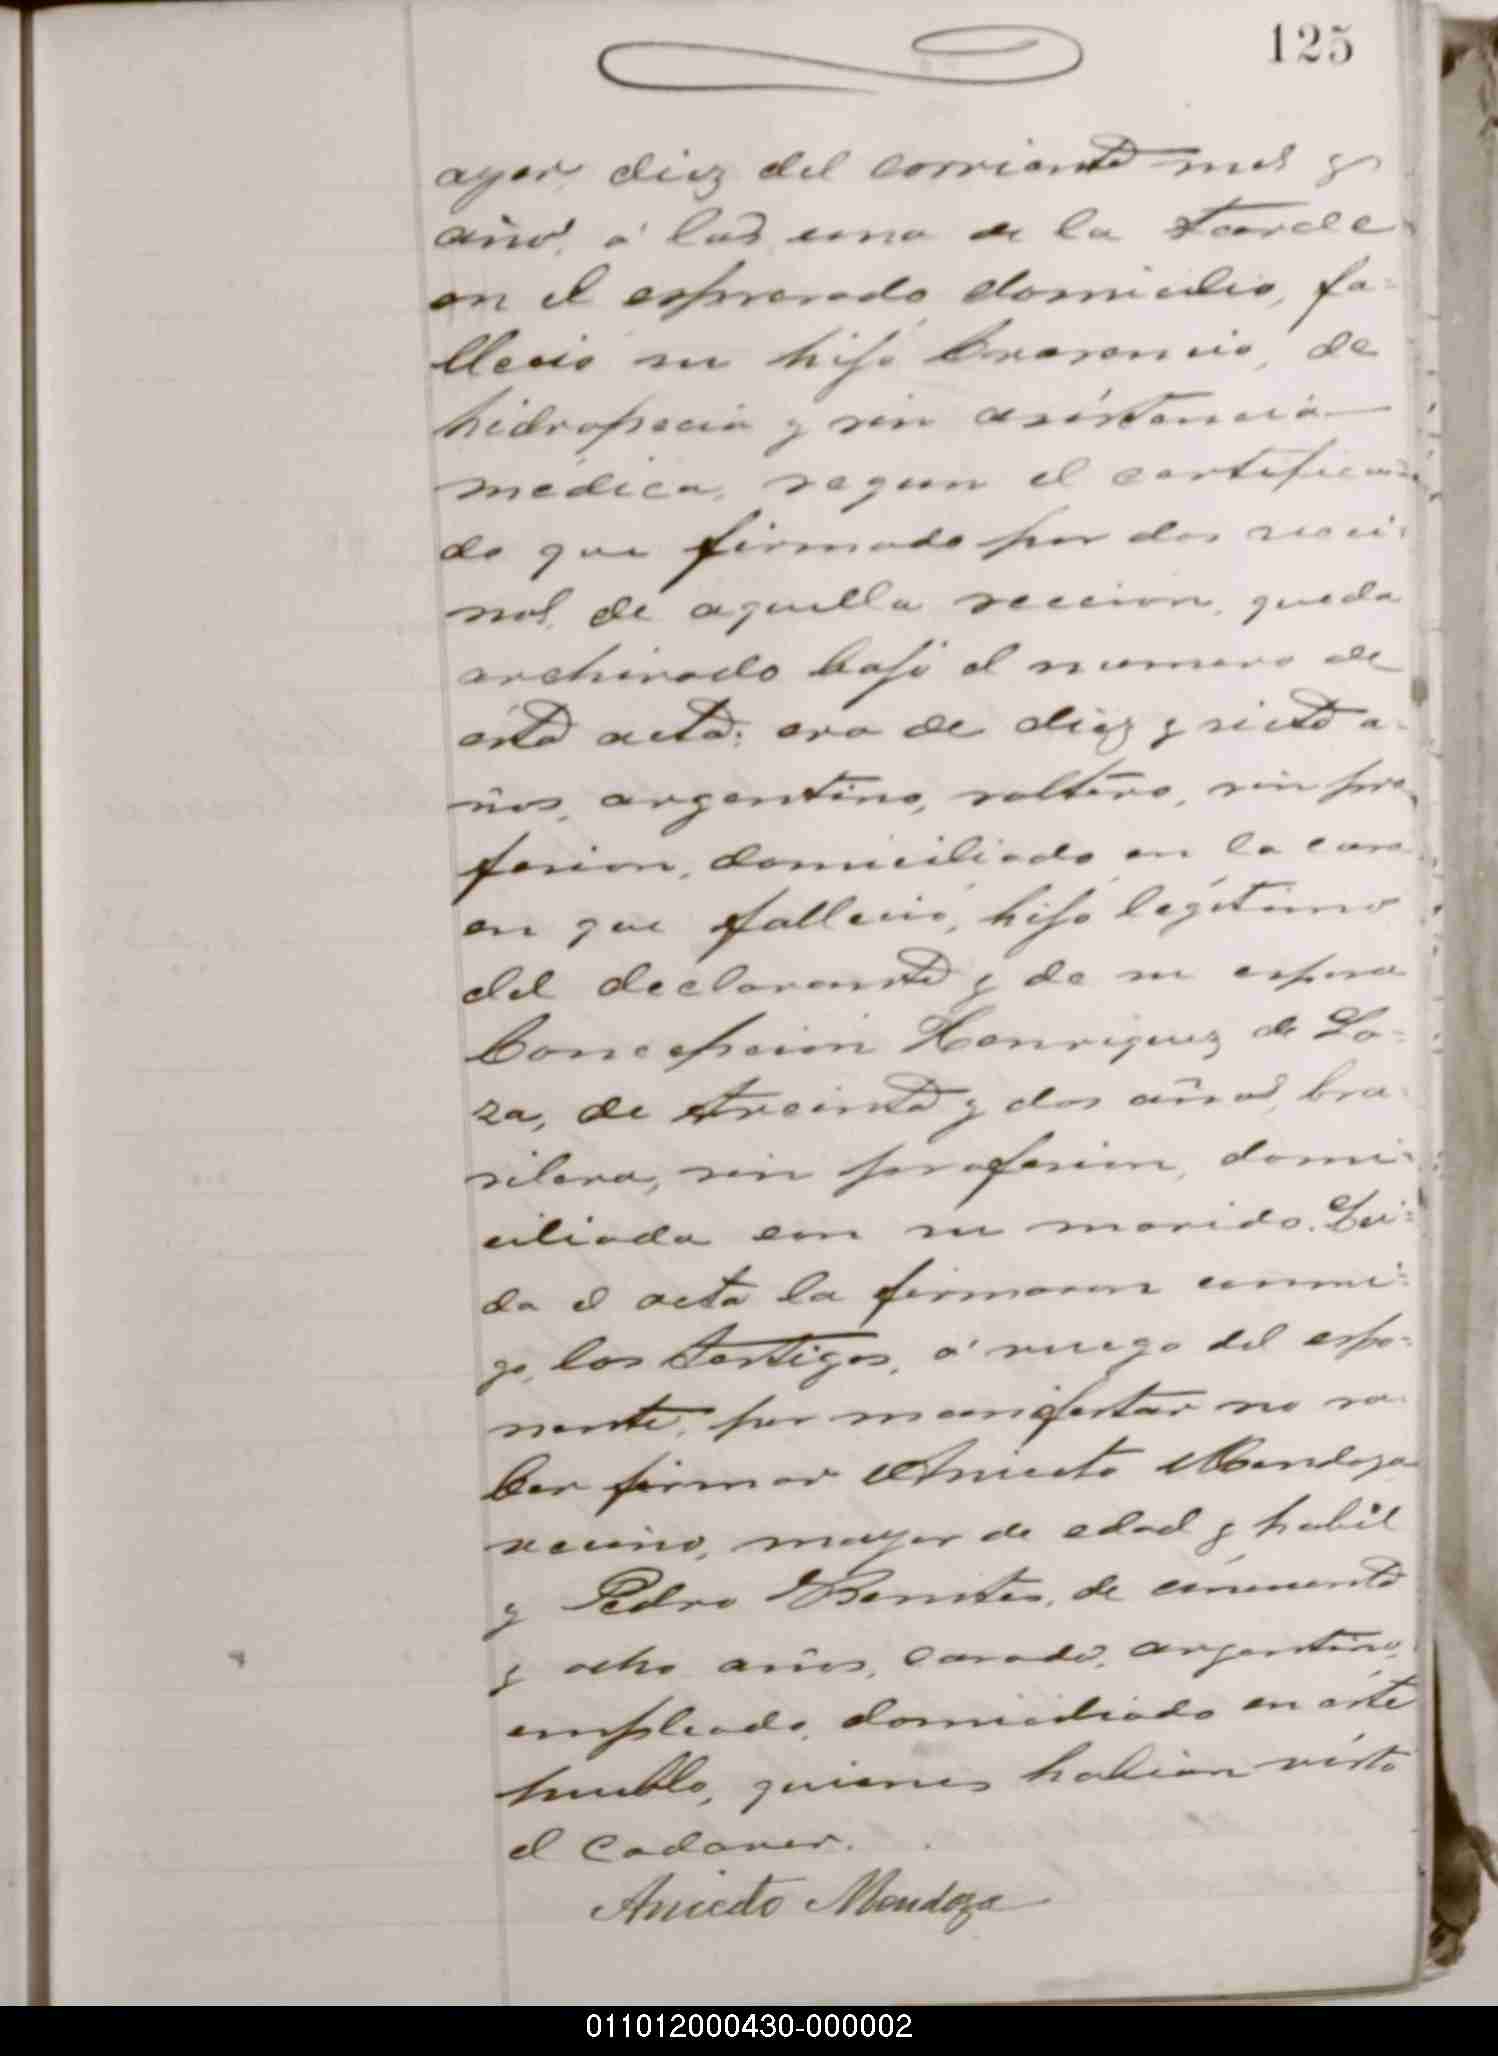 125
ayer, diez del corriente mes y
año, á las una de la tarde
en el espresado domicilio, fa-
lleció su hijo Crecencio, de
hidropecia y sin asistencia
médica, segun el certifica-
do que firmado por dos veci-
nos de aquella seccion, queda
archivado bajo el numero de
ésta acta: era de diez y siete a-
ños, argentino, soltero, sin pro
fesion, domiciliado en la casa
en que falleció, hijo legítimo
del declarante y de su esposa
Concepcion Henriquez de Lo-
za, de treinta y dos años, bra-
silera, sin profesion, domi-
ciliada con su marido. Lei-
da el acta la firmaron conmi-
go, los testigos, á ruego del espo-
nente, por manifestar no sa-
ber firmar Aniceto Mendoza
vecino, mayor de edad y habil
y Pedro Benites, de cincuenta
y ocho años, casado, argentino,
empleado, domiciliado en éste
pueblo, quienes habian visto
el cadaver.
Aniceto Mendoza
011012000430-000002